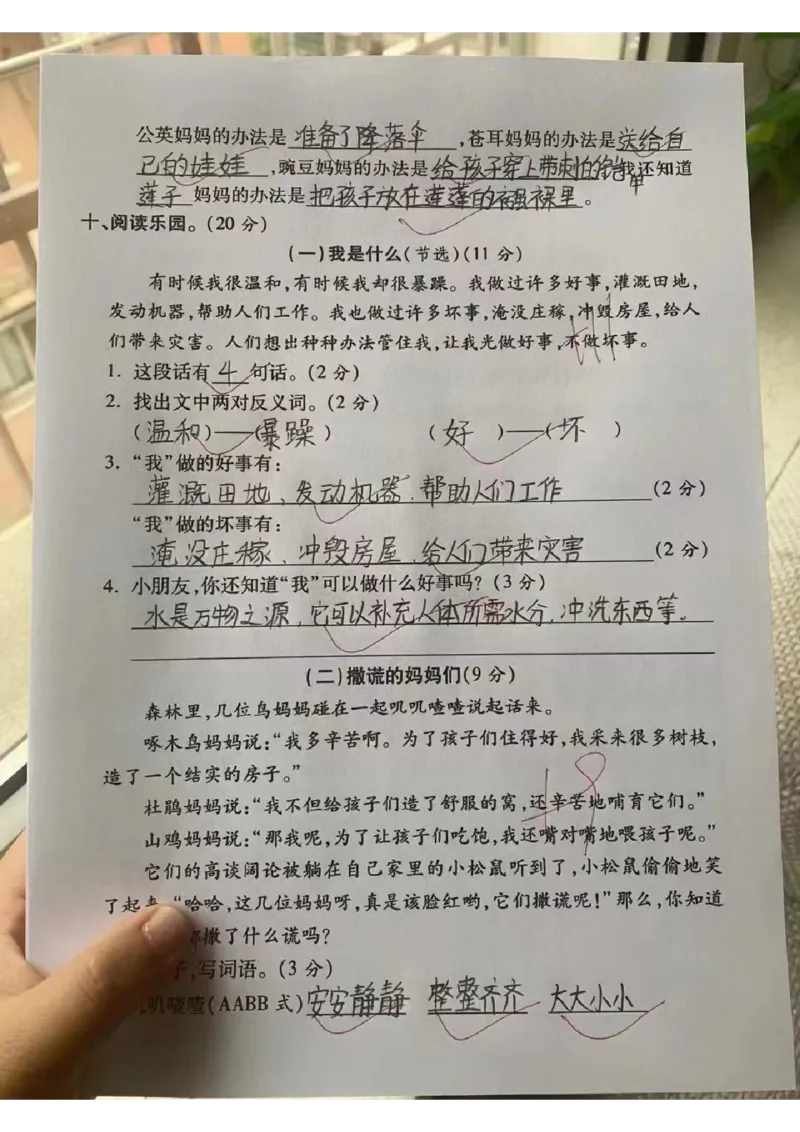 公英妈妈的办法是 准备了降落伞 ,苍耳妈妈的办法是送给自
己的娃娃 ,豌豆妈妈的办法是 给孩子穿上带刺的铠甲我还知道
莲子 妈妈的办法是 把孩子放在莲蓬的襁褓里 。
十、阅读乐园。(20 分)
(一)我是什么(节选)(11 分)
有时候我很温和,有时候我却很暴躁。我做过许多好事,灌溉田地,
发动机器,帮助人们工作。我也做过许多坏事,淹没庄稼,冲毁房屋,给人
们带来灾害。人们想出种种办法管住我,让我光做好事,不做坏事。
+11
1. 这段话有 4 句话。(2 分)
2. 找出文中两对反义词。(2 分)
(温和)——(暴躁) (好)——(坏)
3. “我”做的好事有:
灌溉田地、发动机器、帮助人们工作 (2 分)
“我”做的坏事有:
淹没庄稼、冲毁房屋、给人们带来灾害 (2 分)
4. 小朋友,你还知道“我”可以做什么好事吗? (3 分)
水是万物之源,它可以补充人体所需水分,冲洗东西等。
(二)撒谎的妈妈们(9 分)
森林里,几位鸟妈妈碰在一起叽叽喳喳说起话来。
啄木鸟妈妈说:“我多辛苦啊。为了孩子们住得好,我采来很多树枝,
造了一个结实的房子。”
杜鹃妈妈说:“我不但给孩子们造了舒服的窝,还辛苦地哺育它们。”
山鸡妈妈说:“那我呢,为了让孩子们吃饱,我还嘴对嘴地喂孩子呢。”
它们的高谈阔论被躺在自己家里的小松鼠听到了,小松鼠偷偷地笑
了起来:“哈哈,这几位妈妈呀,真是该脸红哟,它们撒谎呢!”那么,你知道
都撒了什么谎吗?
子,写词语。(3 分)
叽喳喳(AABB 式) 安安静静 整整齐齐 大大小小